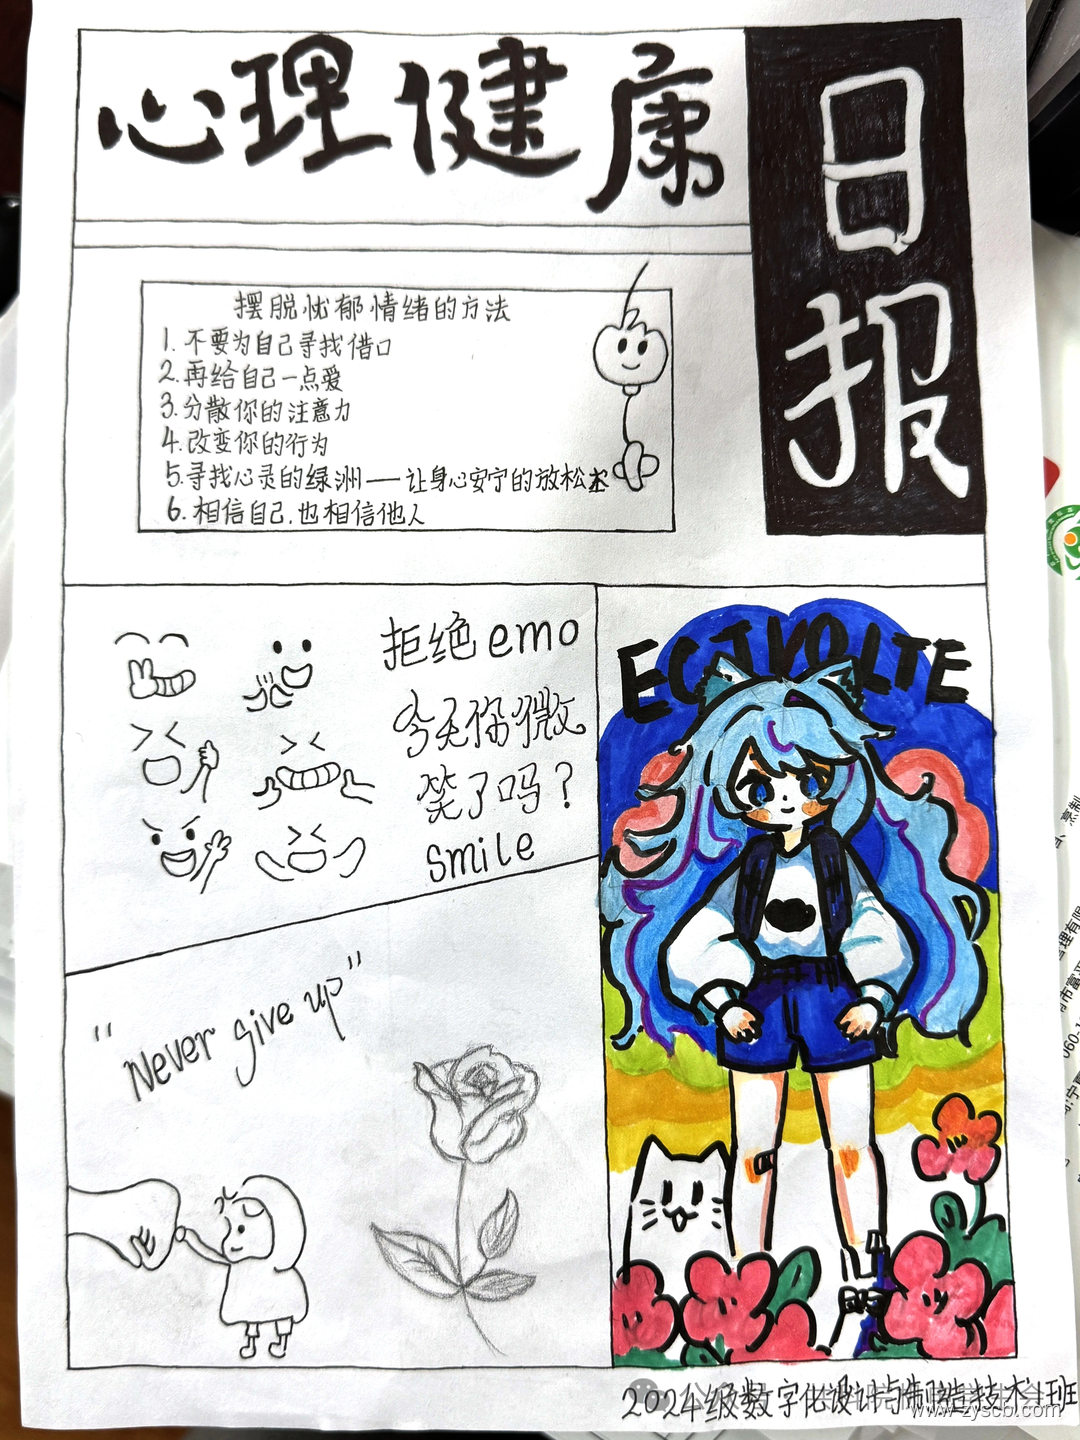 心理健康
日报
摆脱忧郁情绪的方法
1. 不要为自己寻找借口
2. 再给自己一点爱
3. 分散你的注意力
4. 改变你的行为
5. 寻找心灵的绿洲——让身心安宁的放松术
6. 相信自己.也相信他人
拒绝emo
今天你微
笑了吗？
smile
ECJVOLTE
"Never give up"
2024级数字化设计与制造技术1班
www.zyscb.com